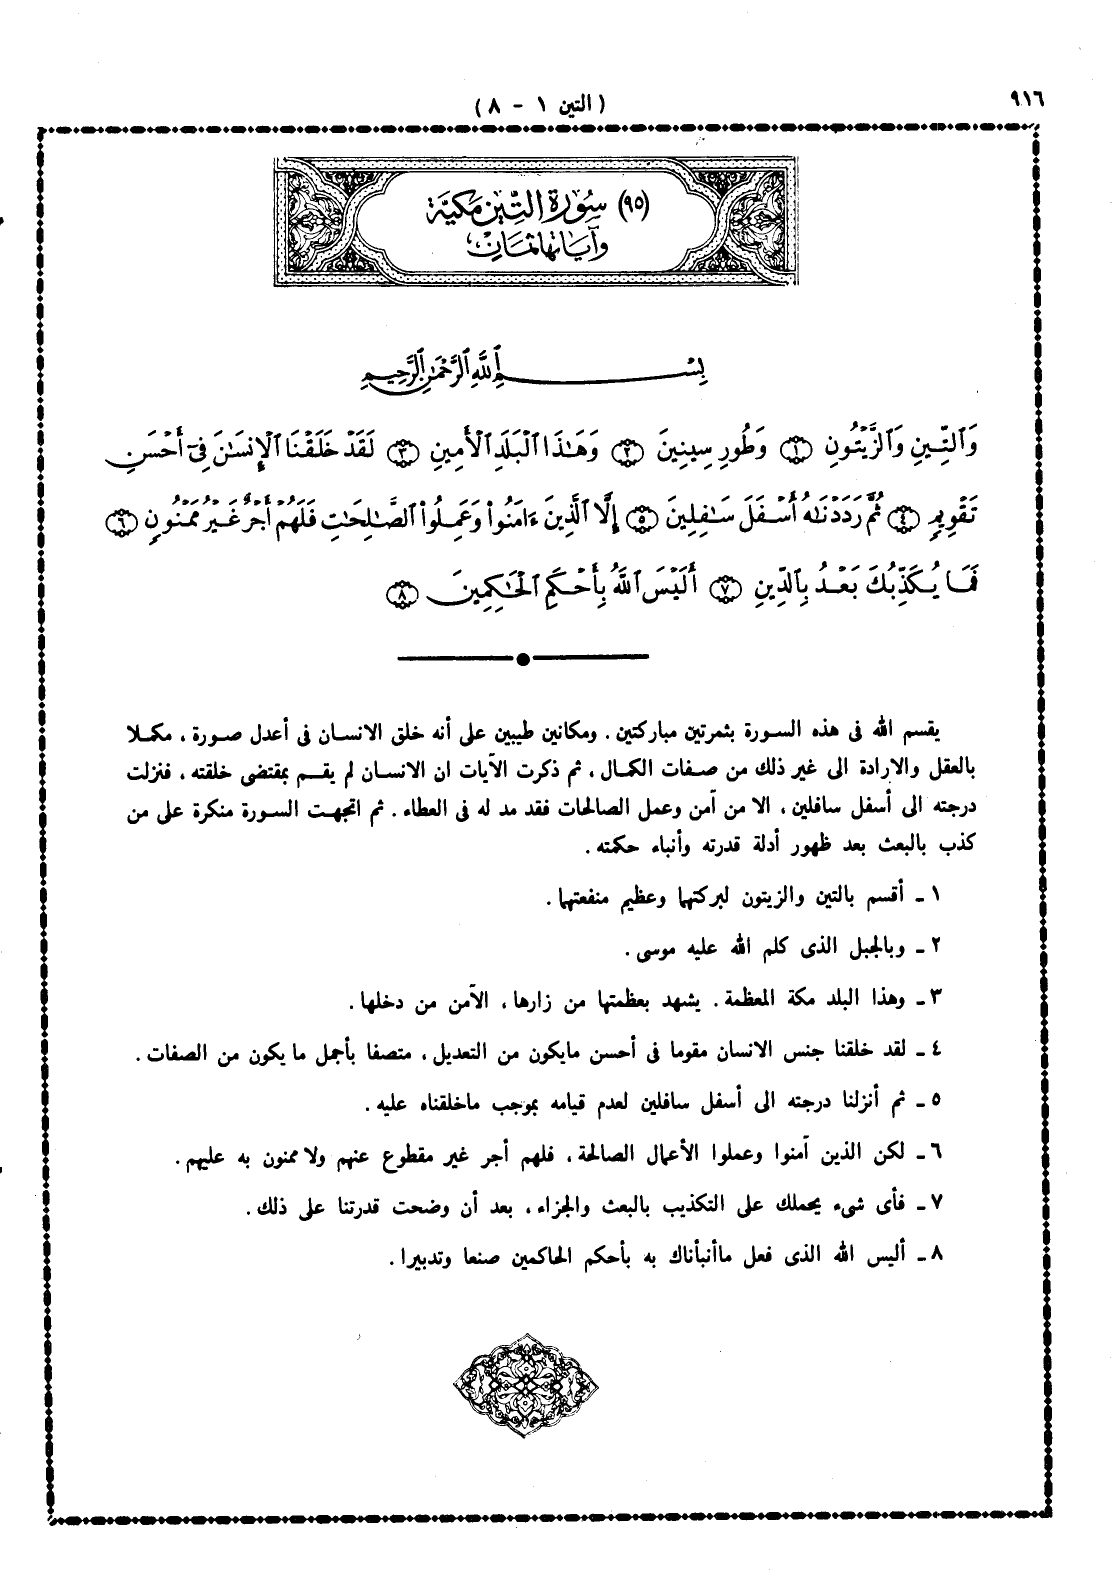 ٩١٦
( التين ١ - ٨ )
(٩٥) سُورَة التِّين مَكيَّة
وآياتها ثمان
بِسْمِ ٱللَّهِ ٱلرَّحْمَٰنِ ٱلرَّحِيمِ
وَٱلتِّينِ وَٱلزَّيْتُونِ ﴿١﴾ وَطُورِ سِينِينَ ﴿٢﴾ وَهَٰذَا ٱلْبَلَدِ ٱلْأَمِينِ ﴿٣﴾ لَقَدْ خَلَقْنَا ٱلْإِنسَٰنَ فِىٓ أَحْسَنِ
تَقْوِيمٍ ﴿٤﴾ ثُمَّ رَدَدْنَٰهُ أَسْفَلَ سَٰفِلِينَ ﴿٥﴾ إِلَّا ٱلَّذِينَ ءَامَنُوا۟ وَعَمِلُوا۟ ٱلصَّٰلِحَٰتِ فَلَهُمْ أَجْرٌ غَيْرُ مَمْنُونٍ ﴿٦﴾
فَمَا يُكَذِّبُكَ بَعْدُ بِٱلدِّينِ ﴿٧﴾ أَلَيْسَ ٱللَّهُ بِأَحْكَمِ ٱلْحَٰكِمِينَ ﴿٨﴾
يقسم الله فى هذه السورة بثمرتين مباركتين . ومكانين طيبين على أنه خلق الانسان فى أعدل صورة ، مكملا
بالعقل والارادة الى غير ذلك من صفات الكمال ، ثم ذكرت الآيات ان الانسان لم يقم بمقتضى خلقته ، فنزلت
درجته الى أسفل سافلين ، الا من آمن وعمل الصالحات فقد مد له فى العطاء . ثم اتجهت السورة منكرة على من
كذب بالبعث بعد ظهور أدلة قدرته وأنباء حكمته .
١ ـ أقسم بالتين والزيتون لبركتها وعظيم منفعتها .
٢ ـ وبالجبل الذى كلم الله عليه موسى .
٣ ـ وهذا البلد مكة المعظمة . يشهد بعظمتها من زارها ، الآمن من دخلها .
٤ ـ لقد خلقنا جنس الانسان مقوما فى أحسن مايكون من التعديل ، متصفا بأجمل ما يكون من الصفات .
٥ ـ ثم أنزلنا درجته الى أسفل سافلين لعدم قيامه بموجب ماخلقناه عليه .
٦ ـ لكن الذين آمنوا وعملوا الأعمال الصالحة ، فلهم أجر غير مقطوع عنهم ولا ممنون به عليهم .
٧ ـ فأى شىء يحملك على التكذيب بالبعث والجزاء ، بعد أن وضحت قدرتنا على ذلك .
٨ ـ أليس الله الذى فعل ماأنبأناك به بأحكم الحاكمين صنعا وتدبيرا .